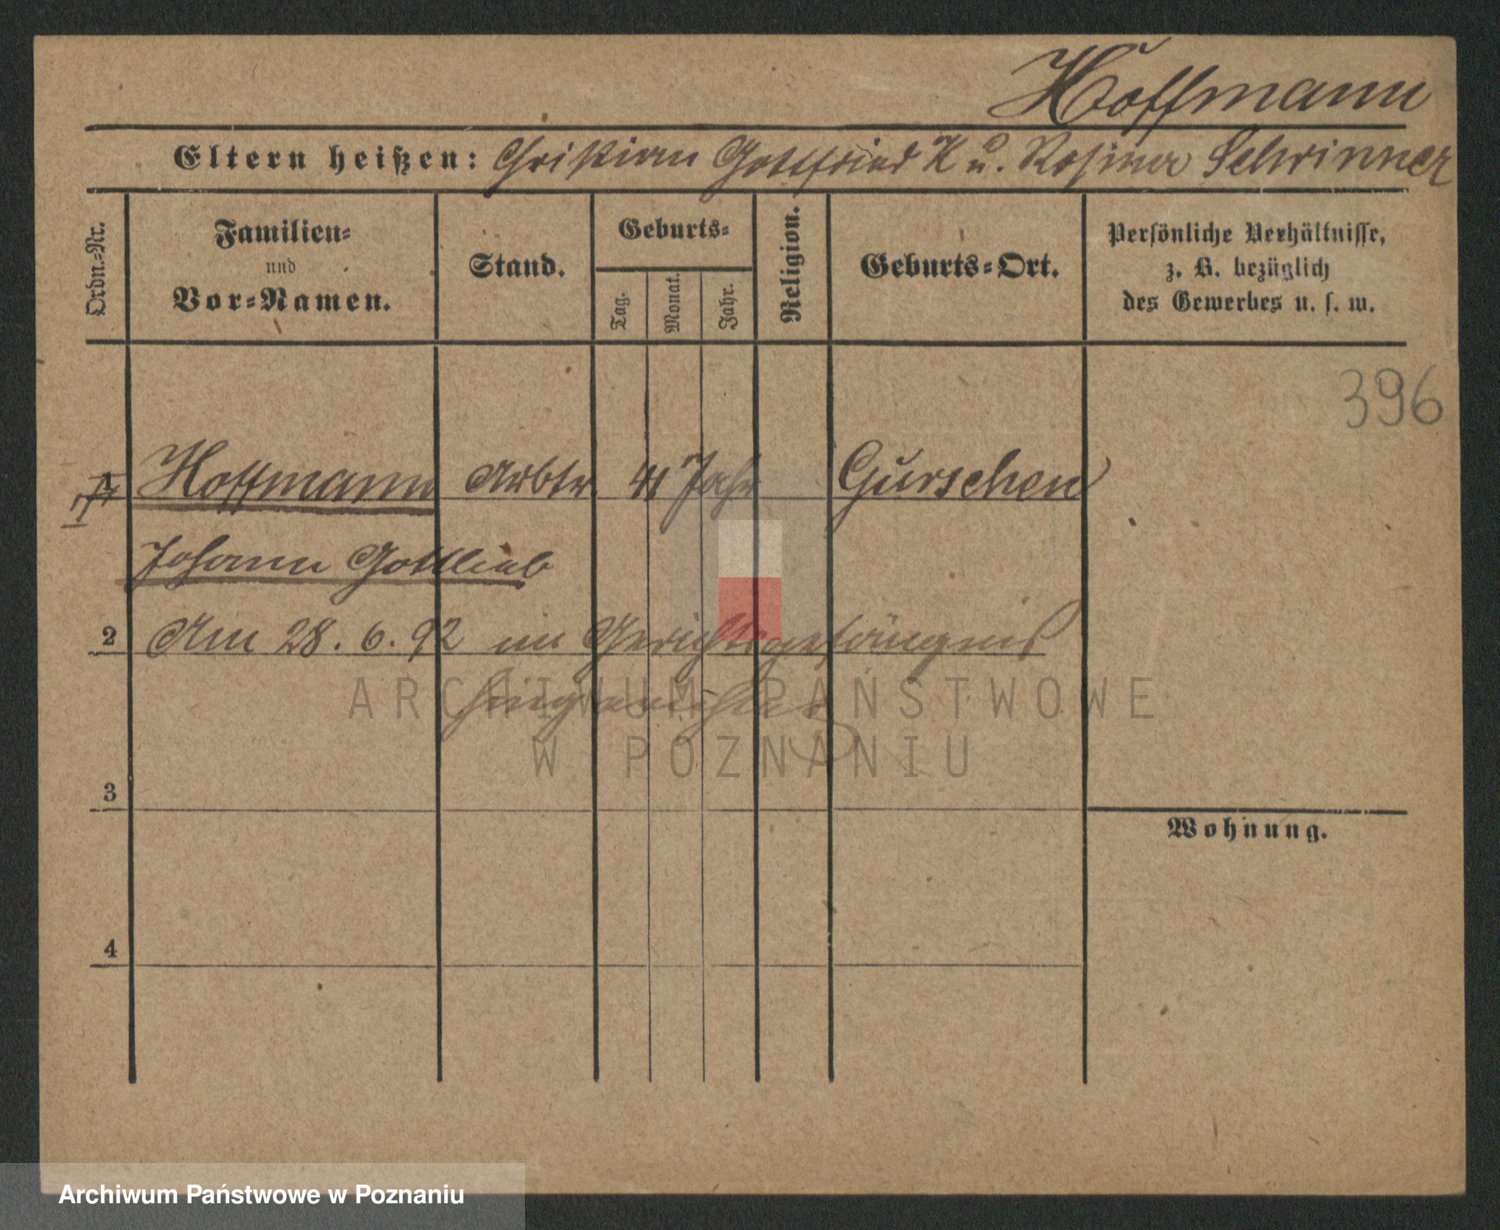 Hoffmann
Eltern heißen: Christian Gottfried H u. Rosina Schrinner
Ordn.-Nr.
Familien-
und
Vor-Namen.
Stand.
Geburts-
Tag.
Monat.
Jahr.
Religion.
Geburts-Ort.
Persönliche Verhältnisse,
z. B. bezüglich
des Gewerbes u. s. w.
396
1 Hoffmann Arbtr. 41 Jahr Gurschen
Johann Gottlieb
2 Am 28. 6. 92 im Gerichtsgefängnis
hingerichtet
ARCHIWUM PAŃSTWOWE
W POZNANIU
3
Wohnung.
4
Archiwum Państwowe w Poznaniu